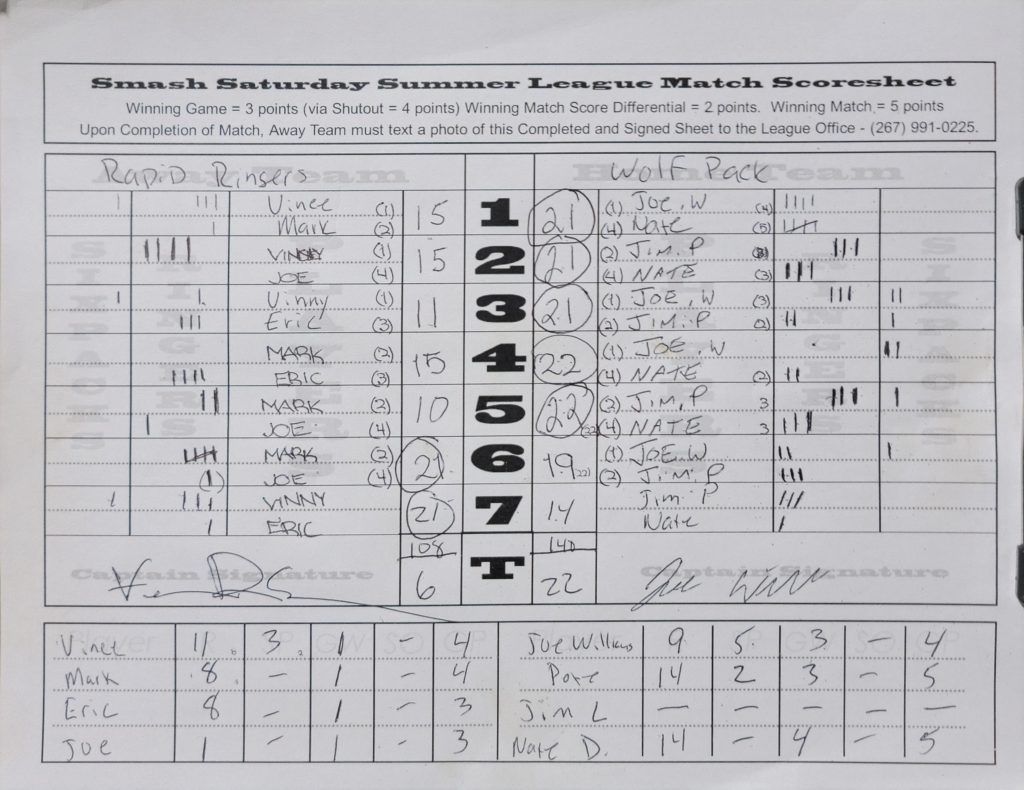 Smash Saturday Summer League Match Scoresheet
Winning Game = 3 points (via Shutout = 4 points) Winning Match Score Differential = 2 points. Winning Match = 5 points
Upon Completion of Match, Away Team must text a photo of this Completed and Signed Sheet to the League Office - (267) 991-0225.
Rapid Ringers Wolf Pack
Away Team Home Team
Vinee (1) 15 1 21 (1) Joe.W (4)
Mark (2) (4) Nate (5)
VINNY (1) 15 2 21 (2) Jim.P
JOE (4) (4) NATE (3)
Vinny (1) 11 3 21 (1) JOE.W (3)
Eric (3) (2) JIM.P (2)
MARK (2) 15 4 22 (1) JOE.W
ERIC (3) (4) NATE (2)
MARK (2) 10 5 22 (2) JIM.P 3
JOE (4) (22) (4) NATE 3
MARK (2) 21 6 19 (22) (1) JOE.W
JOE (4) (2) JIM.P
VINNY 21 7 14 Jim P
ERIC Nate
108 T 140
6 22
Captain Signature Captain Signature
SIXPACKS RINGERS PLAYERS PLAYERS RINGERS SIXPACKS
Player R SP GW SO GP Player R SP GW SO GP
Vinee 11 3 1 - 4 Joe Williams 9 5 3 - 4
Mark 8 - 1 - 4 Pote 14 2 3 - 5
Eric 8 - 1 - 3 Jim L - - - - -
Joe 1 - 1 - 3 Nate D. 14 - 4 - 5